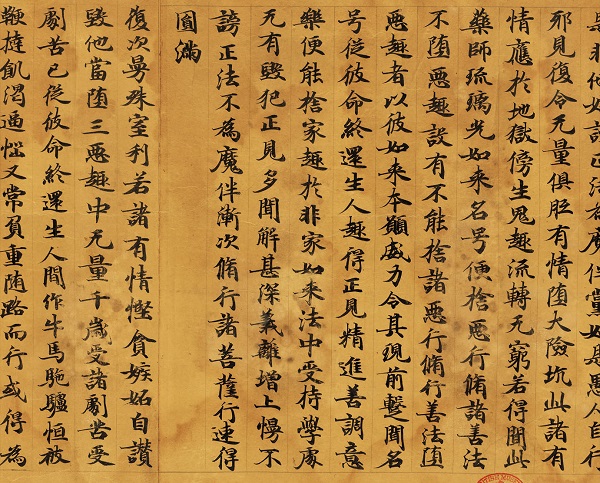 是非他嫌謗正法為魔伴黨如是愚人自行
邪見復令无量俱胝有情堕大險坑此諸有
情應於地獄傍生鬼趣流轉无窮若得聞此
藥師琉璃光如來名号便捨惡行脩諸善法
不堕惡趣設有不能捨諸惡行脩行善法堕
惡趣者以彼如来本願威力令其現前蹔聞名
号從彼命終還生人趣得正見精進善調意
樂便能捨家趣於非家如来法中受持學處
无有毀犯正見多聞解甚深義離增上慢不
謗正法不為魔伴漸次脩行諸菩薩行速得
圓滿
復次曼殊室利若諸有情慳貪嫉妬自讚
毀他當堕三惡趣中无量千歲受諸劇苦受
劇苦已從彼命終還生人間作牛馬駞驢恒被
鞭撻飢渴逼惱又常負重随路而行或得為